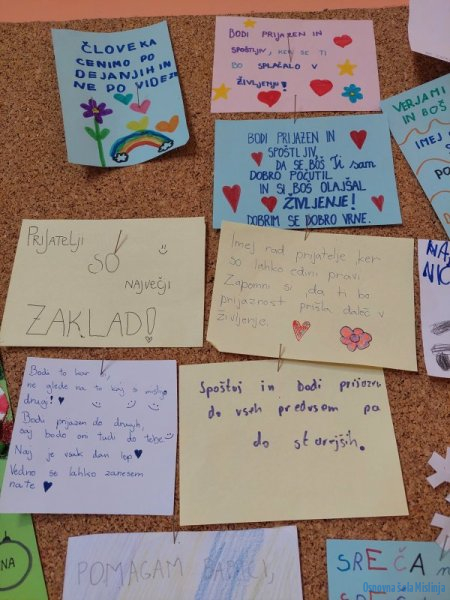 ČLOVEKA
CENIMO PO
DEJANJIH IN
NE PO VIDEZU
BODI PRIJAZEN IN
SPOŠTLJIV, KER SE TI
BO SPLAČALO V
ŽIVLJENJU!
BODI PRIJAZEN IN
SPOŠTLJIV,
DA SE BOŠ TI SAM
DOBRO POČUTIL
IN SI BOŠ OLAJŠAL
ŽIVLJENJE!
DOBRIM SE DOBRO VRNE.
VERJAMI
IN BOŠ
IMEJ
PRIJATELJI
SO
NAJVEČJI
ZAKLAD!
Imej rad prijatelje ker
so lahko edini pravi.
Zapomni si, da ti bo
prijaznost prišla daleč v
življenje.
NA
NIČ
Bodi to kar
ne glede na to kaj si mislijo
drugi!
Bodi prijazen do drugih,
saj bodo oni tudi do tebe
Naj je vsak dan lep
Vedno se lahko zanesem
nate
Spoštuj in bodi prijazen
do vseh predvsem pa
do starejših.
POMAGAM BABICI,
SREČA
Osnovna šola Mislinja